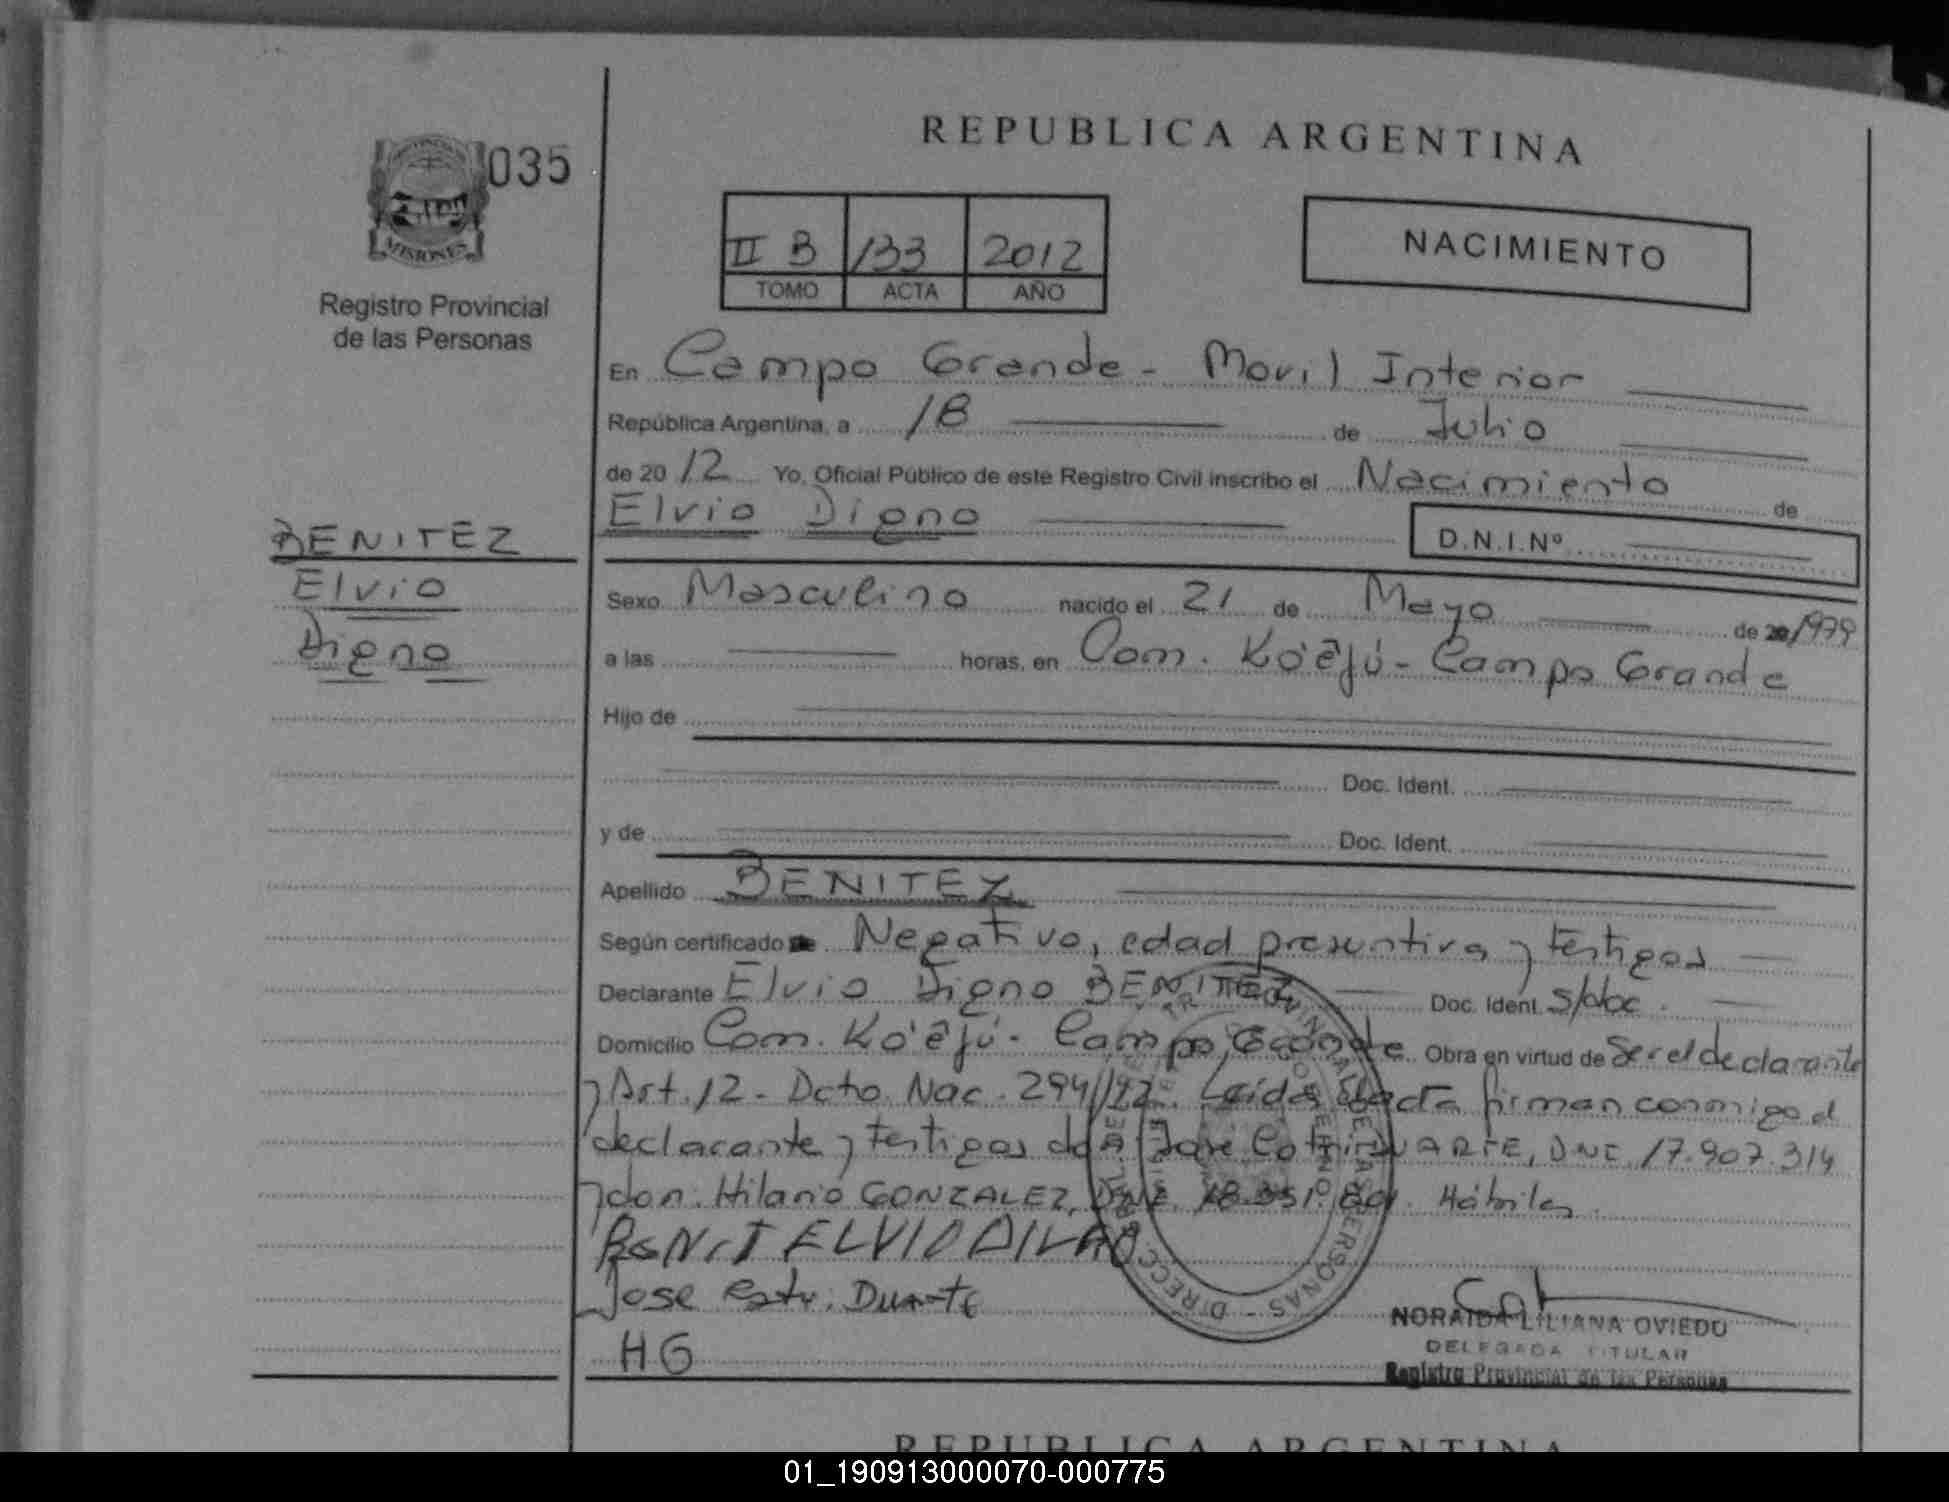 035
MISIONES
Registro Provincial
de las Personas
REPUBLICA ARGENTINA
II B 133 2012
TOMO ACTA AÑO
NACIMIENTO
En Campo Grande - Movil Interior
República Argentina, a 18 de Julio
de 20 12 Yo, Oficial Público de este Registro Civil inscribo el Nacimiento de
Elvio Digno D.N.I.Nº
BENITEZ
Elvio
Digno
Sexo Masculino nacido el 21 de Mayo de 1979
a las horas, en Com. Ko'êjú - Campo Grande
Hijo de
Doc. Ident.
y de Doc. Ident.
Apellido BENITEZ
Según certificado Negativo, edad presuntiva y testigos
Declarante Elvio Digno BENITEZ Doc. Ident. s/doc.
Domicilio Com. Ko'êjú - Campo Grande Obra en virtud de Ser el declarante
y Art. 12 - Dcto. Nac. Leída el acta firman conmigo el
declarante y testigos don Jose DUARTE, DNI 17.907.314
y don. Hilario GONZALEZ, DNI Hábiles.
BENIT ELVIO
Jose Duarte
HG
NORAIDA LILIANA OVIEDO
DELEGADA TITULAR
Registro Provincial de las Personas
REPUBLICA ARGENTINA
01_190913000070-000775